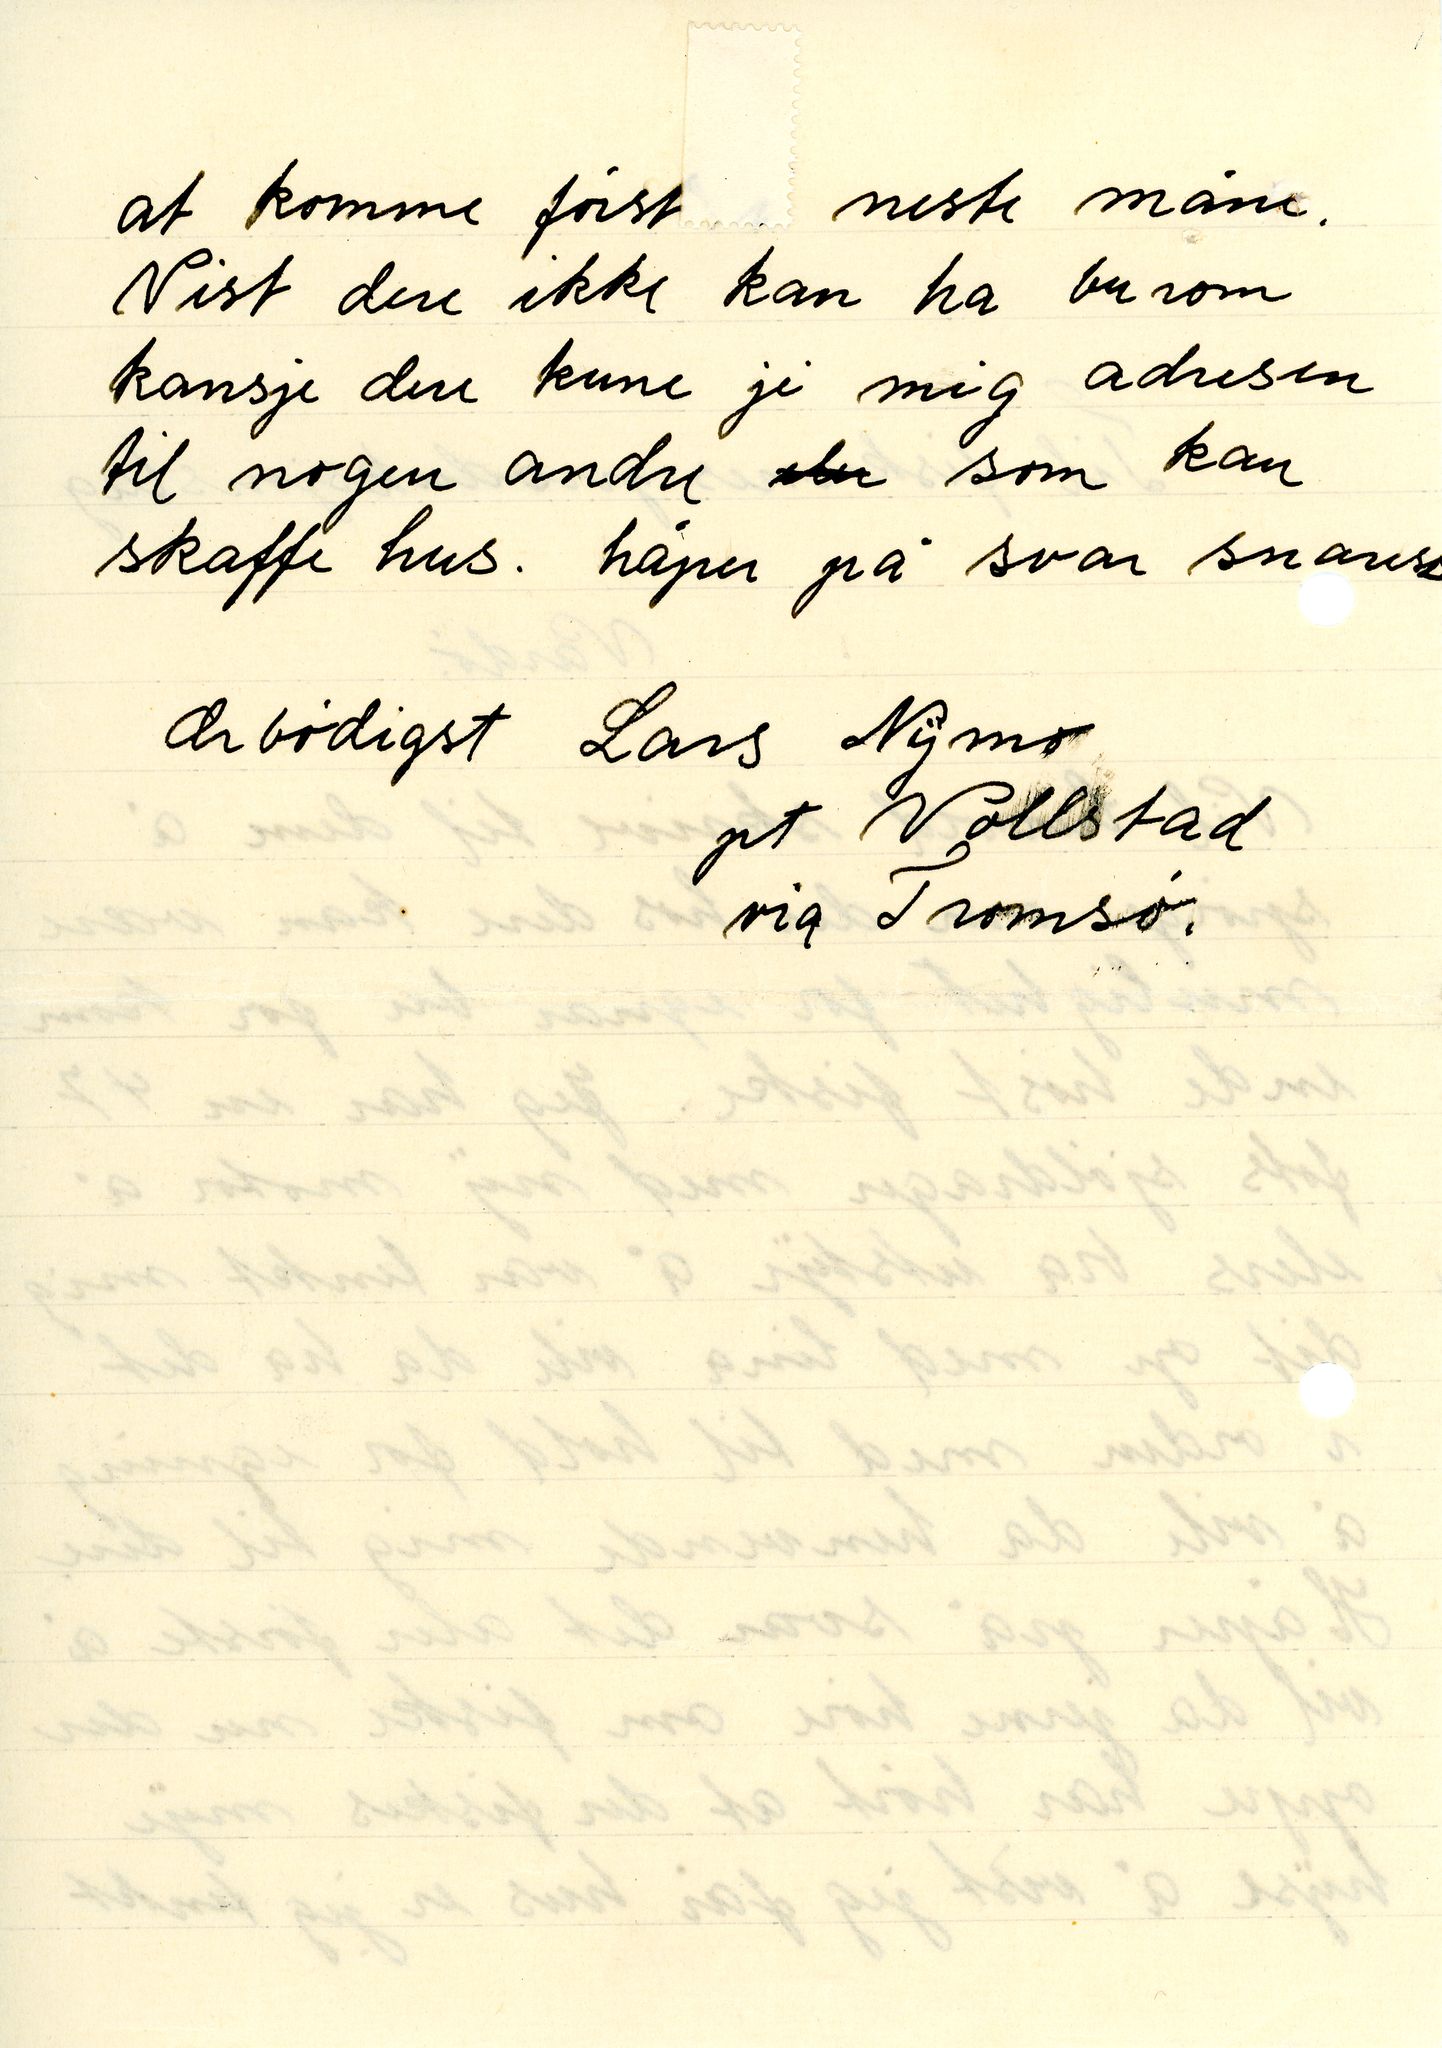 at komme først neste måne.
Vist dere ikke kan ha burom
kansje dere kune ji mig adresen
til nogen andre som kan
skaffe hus. håper på svar snarest
Ærbødigst Lars Nÿmo
pt Vollstad
via Tromsø.